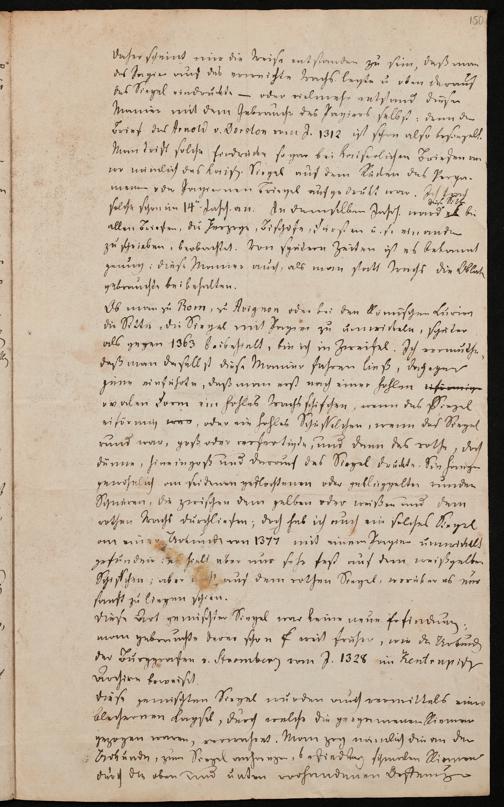 150
daher scheint mir die Weise entstanden zu sein, daß man
das Papier auf das erweichte Wachs legte u oben darauf
das Siegel eindrükte — oder vielmehr entstand diese
Manier mit dem Gebrauche des Papiers selbst; denn der
Brief des Arnold v. vom J. 1312 ist schon also besiegelt.
Man trift solche Eindrücke sogar bei Kaiserlichen Briefen an
wo nämlich das Kaiserl. Siegel auf dem Rücken des Perga-
mens von Papiernem aufgedrükt war.
solche schon im 14t Jahrh. an. In demselben Jahrh. ward es bei
allen Briefen, die Herzoge, Bischöfe, Fürsten u. s. einander
zuschrieben, beobachtet. Von spätern Zeiten ist es bekannt
genug; diese Manier auch, als man statt Wachs die Oblate
gebrauchte beibehalten.
Ob man zu Rom, zu Avignon oder bei den Römischen Kurien
die Sitte, die Siegel mit Papier zu umwickeln, später
als gegen 1363 beibehalt, bin ich in Zweifel. Ich vermuthe,
daß man daselbst diese Manier fahren ließ, dagegen
jene einführte, daß man erst nach einer hohlen
ovalen Form ein hohles Wachsschifchen, wenn das Siegel
eiförmig war, oder ein hohles Schüsselchen, wenn das Siegel
rund war, groß oder verfertigte, und denn das rothe, doch
dünne, hineingoß und darauf das Siegel drükte. Sie hingen
gewöhnlich an seidenen geflochtenen oder runden
Schnüren, die zwischen dem gelben oder weißen und dem
rothen Wachs durchliefen; doch hab ich auch ein solches Siegel
an einer Urkunde von 1377 mit einem Papier umwickelt
gefunden; es hielt aber nur sehr fest auf dem weißgelben
Schifchen; aber auf dem rothen Siegel, worüber es nur
sanft zu liegen schien.
Diese Art gemischter Siegel war keine neue Erfindung;
man gebrauchte deren schon weit früher, wie die Urkunde
der Burggrafen v. Stromberg vom J. 1328 im
Archive beweiset.
Diese gemischten Siegel wurden auch vermittelst einer
blechernen Kapsel, durch welche die pergamenen Riemen
gezogen waren, verwahret. Man zog nämlich die an der
Urkunde, zum Siegel anhangen, befindlich schmalen Riemen
durch die oben und unten vorhandenen Oeffnung